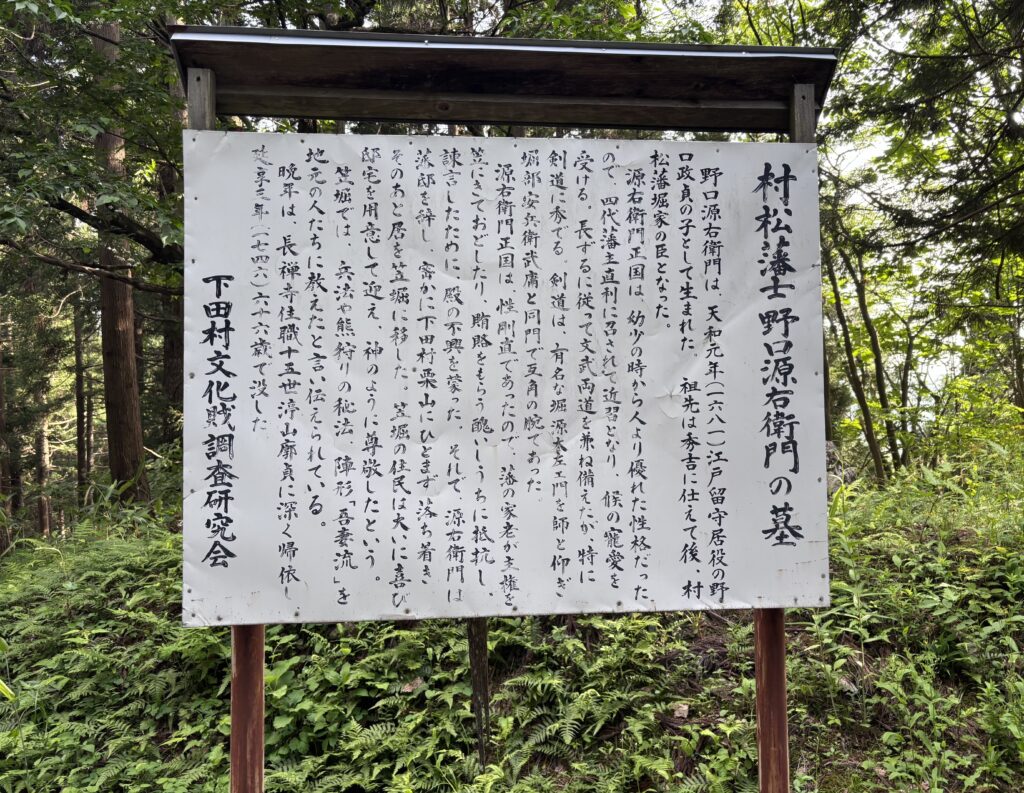 村松藩士野口源右衛門の墓
野口源右衛門は、天和元年(一六八一)江戸留守居役の野
口政貞の子として生まれた。祖先は秀吉に仕えて後、村
松藩堀家の臣となった。
源右衛門正国は、幼少の時から人より優れた性格だった
ので、四代藩主直利に召されて近習となり、候の寵愛を
受ける。長ずるに従って文武両道を兼ね備えたが、特に
剣道に秀でる。剣道は、有名な堀源太左エ門を師と仰ぎ
堀部安兵衛武庸と同門で互角の腕であった。
源右衛門正国は、性剛直であったので、藩の家老が主権を
笠にきておどしたり、賄賂をもらう醜いしうちに抵抗し
諌言したために、殿の不興を蒙った。それで、源右衛門は
藩邸を辞し、密かに下田村栗山にひとまず落ち着き
そのあと居を笠堀に移した。笠堀の住民は大いに喜び
邸宅を用意して迎え、神のように尊敬したという。
笠堀では、兵法や熊狩りの秘法、陣形「吾妻流」を
地元の人たちに教えたと言い伝えられている。
晩年は、長禅寺住職十五世淳山廓貞に深く帰依し
延享三年(一七四六)六十六歳で没した。
下田村文化財調査研究会